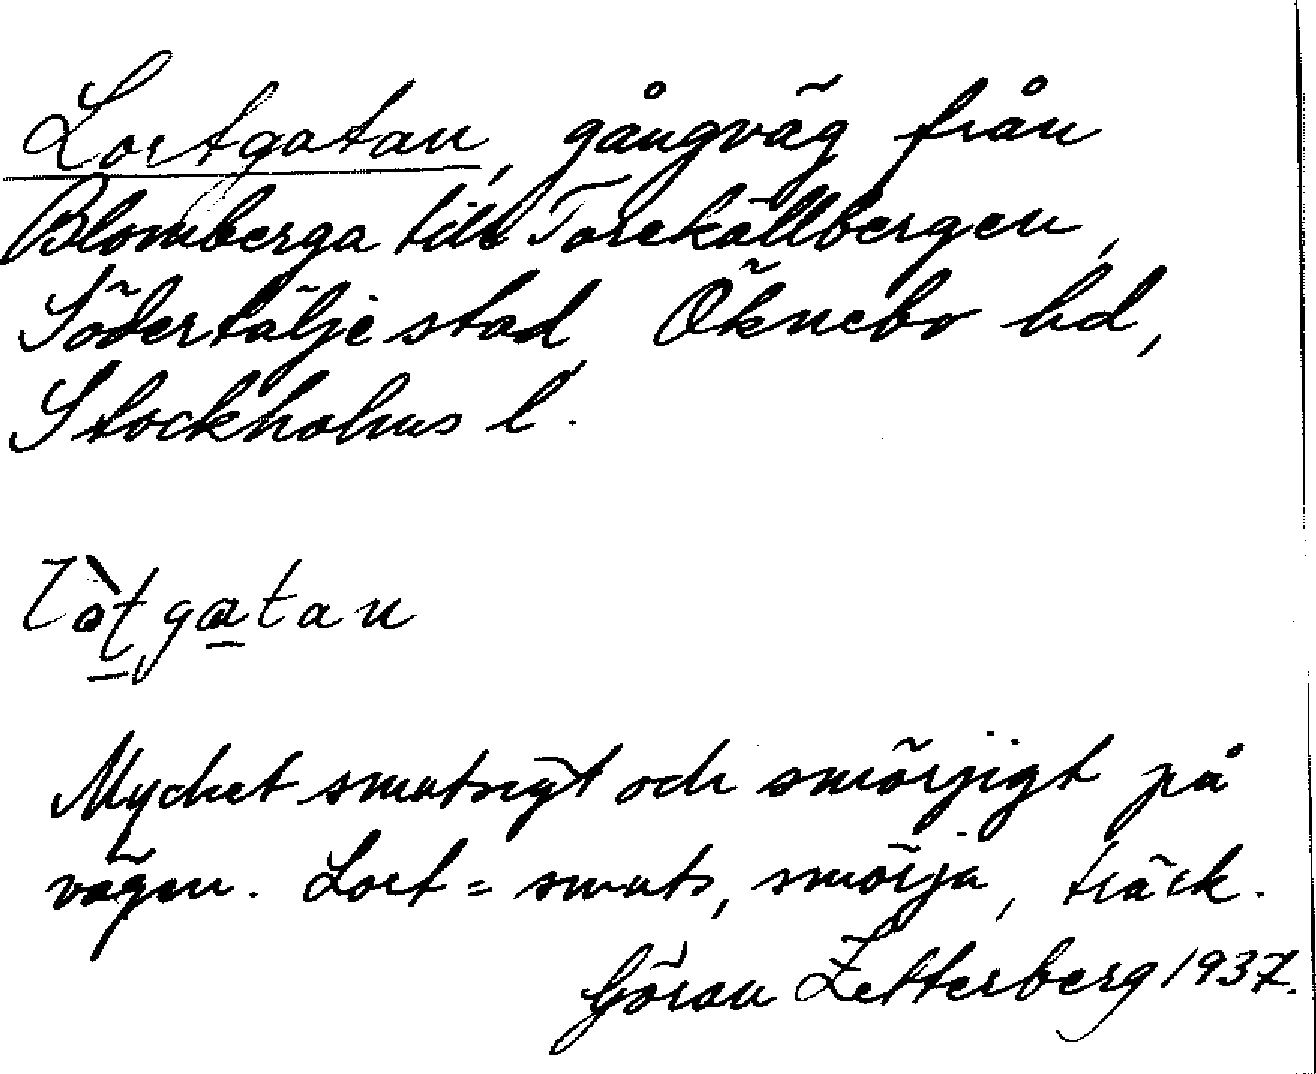 Lortgatan, gångväg från
Blomberga till Torekällbergen,
Södertälje stad Öknebo hd,
Stockholms l.
lòtgatan
Mycket smutsigt och smörjigt på
vägen. Lort = smuts, smörja, träck.
Göran Zetterberg 1937.